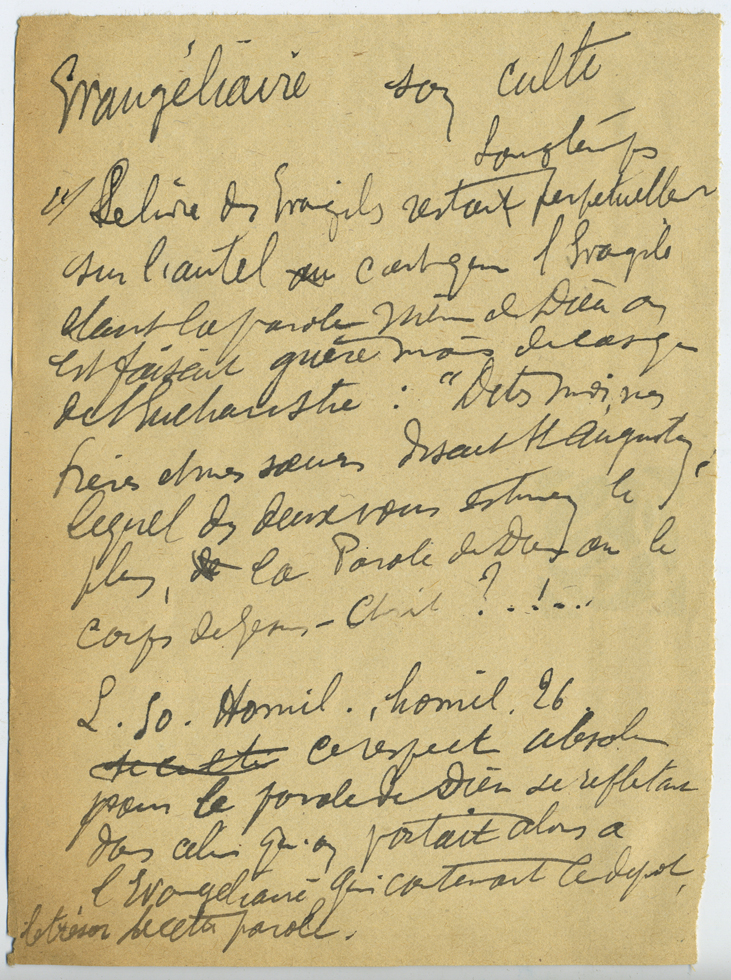 Evangéliaire son culte
Longtemps
1º/ Le livre des Evangiles restait perpétuellem
sur l'autel au car l'Evangile
étant la parole même de Dieu on
en faisait guère moins de cas que
de l'Eucharistie : "Dites moi, mes
frères et mes sœurs disait St Augustin,
lequel des deux vous estimez le
plus, de la Parole de Dieu ou le
corps de Jesus-Christ ?.!...
L. 50. Homil., homil. 26
ce culte ce respect absolu
pour la parole de Dieu se reflétait
dans celui qu'on portait alors à
l'Evangéliaire qui contenait le dépot,
le trésor de cette parole.